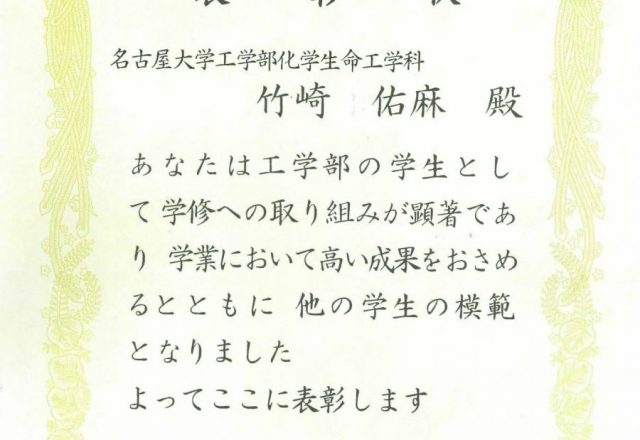 表彰状
名古屋大学工学部化学生命工学科
竹崎 佑麻 殿
あなたは工学部の学生とし
て学修への取り組みが顕著であ
り 学業において高い成果をおさめ
るとともに 他の学生の模範
となりました
よってここに表彰します